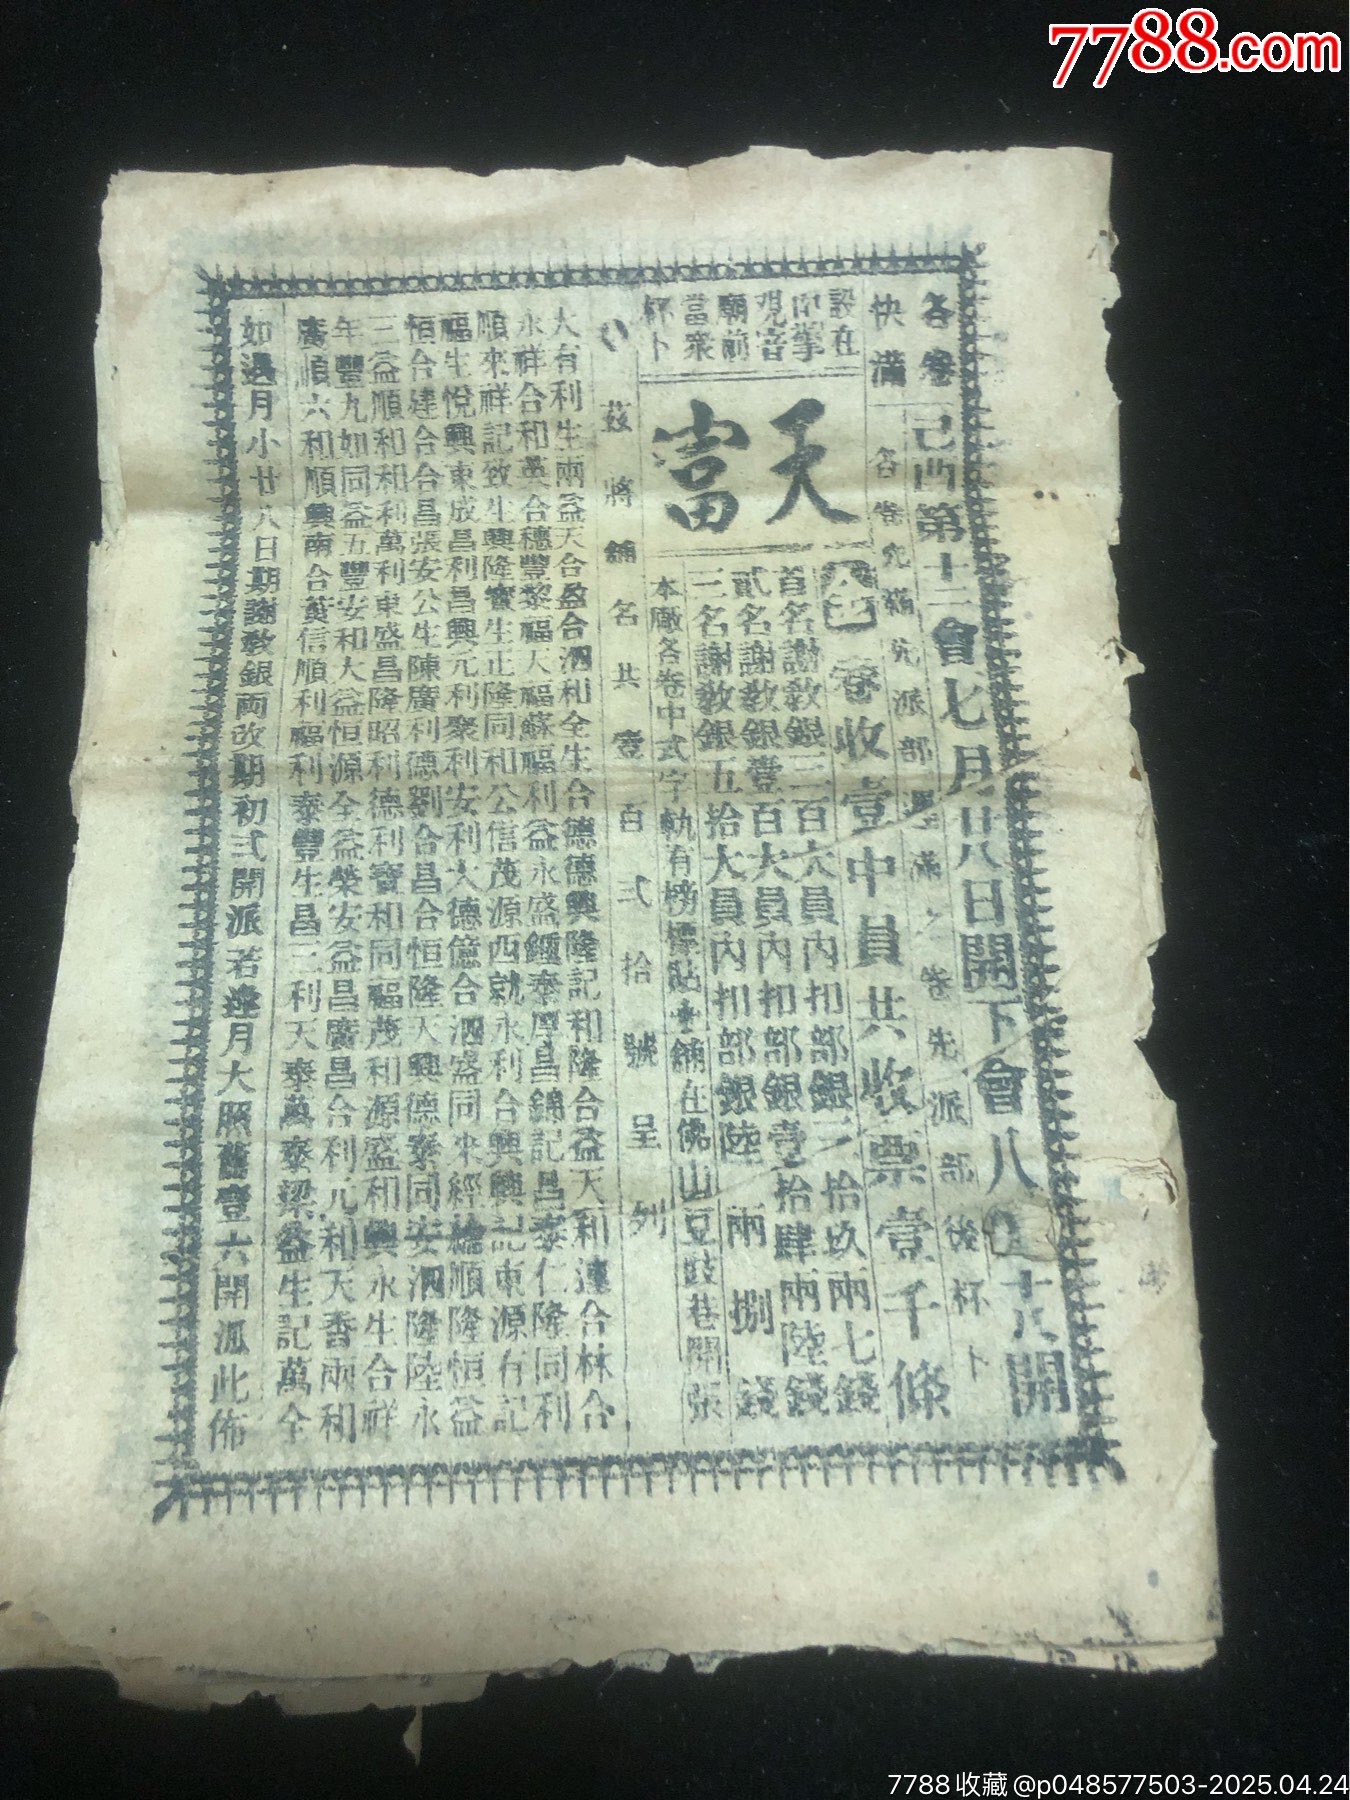 7788.com
各卷快滿
己酉第十三會七月廿八日開下會八 十八開
各卷先滿先派部 滿之卷先派部後杯卜
設在印掌觀音廟前當衆杯卜
天富
卷收壹中員共收票壹千條
首名謝教銀二百大員內扣部銀二拾玖兩七錢
貳名謝教銀壹百大員內扣部銀壹拾肆兩陸錢
三名謝教銀五拾大員內扣部銀陸兩捌錢
本廠各卷中式字軌有榜標貼本舖在佛山豆豉巷開張
茲將舖名共壹百弍拾號呈列
大有利生兩益天合盈合泗和全生合德德興隆記和隆合益天和連合林合
永祥合和英合穗豐黎福大福蘇福利益永盛 泰厚昌錦記昌泰仁隆同利
順來祥記致生興隆寶生正隆同和公信茂源西就永利合興興記東源有記
福生悅興東成昌利昌興元利聚利安利大德億合泗盛同來經綸順隆恒益
恒合建合合昌張安公生陳廣利德劉合昌合恒隆天興德泰同安泗隆陸永
三益順和和利萬利東盛昌隆昭利德利寶和同福茂和源盛和興永生合祥
年豐九如同益五豐安和大益恒源全益榮安益昌廣昌合利元利天香兩和
廣順六和順興南合英信順利福利泰豐生昌三利天泰萬泰梁益生記萬全
如遇月小廿八日期謝教銀兩改期初弍開派若逢月大照舊壹六開派此佈
7788收藏@p048577503-2025.04.24